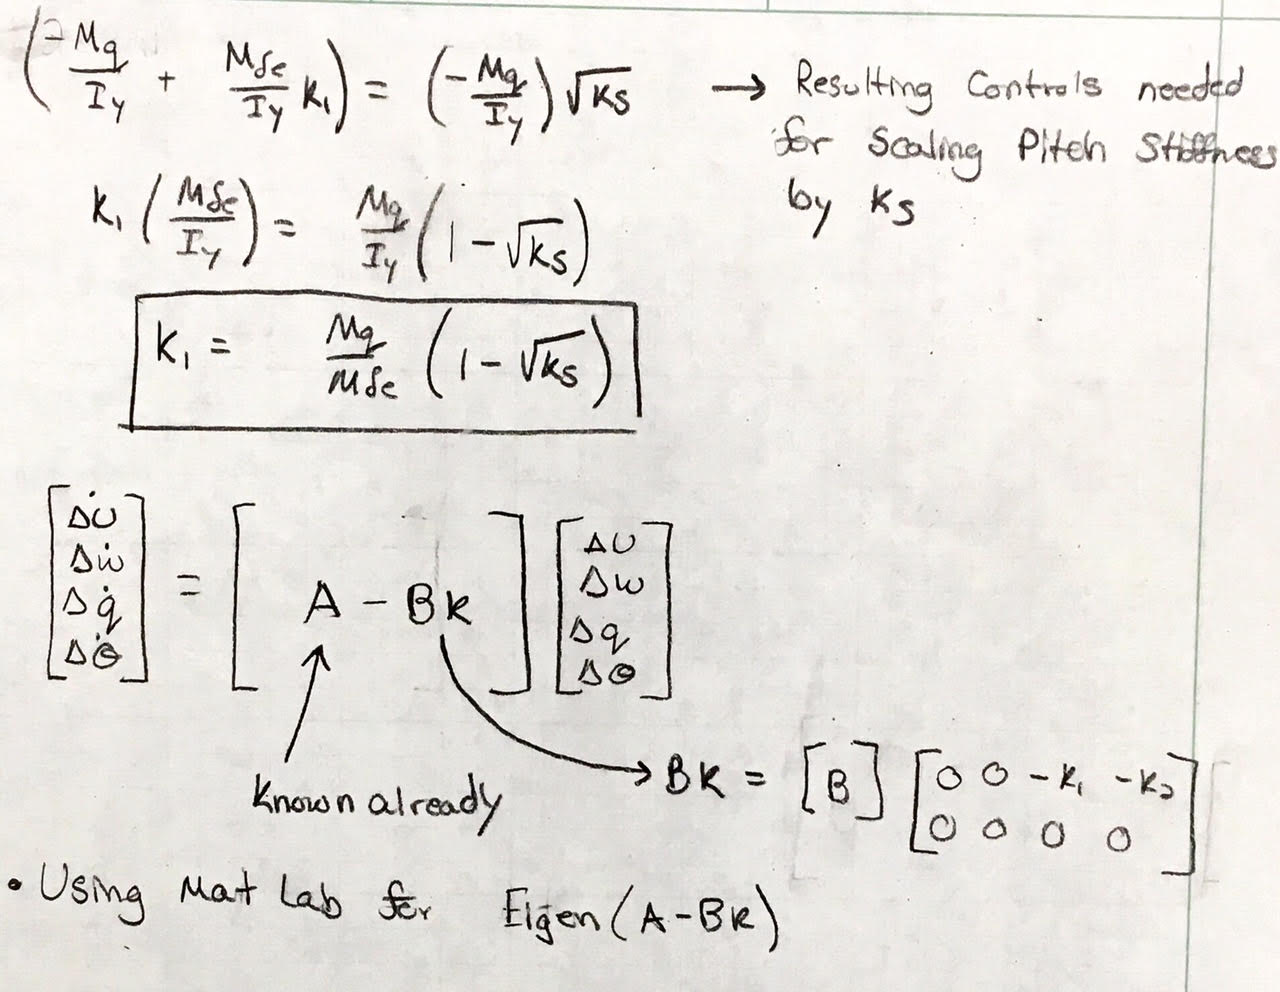 (-Mq/Iy + Mδe/Iy K₁) = (-Mq/Iy) √Ks → Resulting Controls needed
for Scaling Pitch Stiffness
by Ks
K₁ (Mδe/Iy) = Mq/Iy (1 - √Ks)
K₁ = Mq/Mδe (1 - √Ks)
[Δu̇ Δẇ Δq̇ Δθ̇] = [A - BK] [Δu Δw Δq Δθ]
Known already
BK = [B] [0 0 -K₁ -K₂
0 0 0 0]
• Using Mat Lab for Eigen(A-BK)